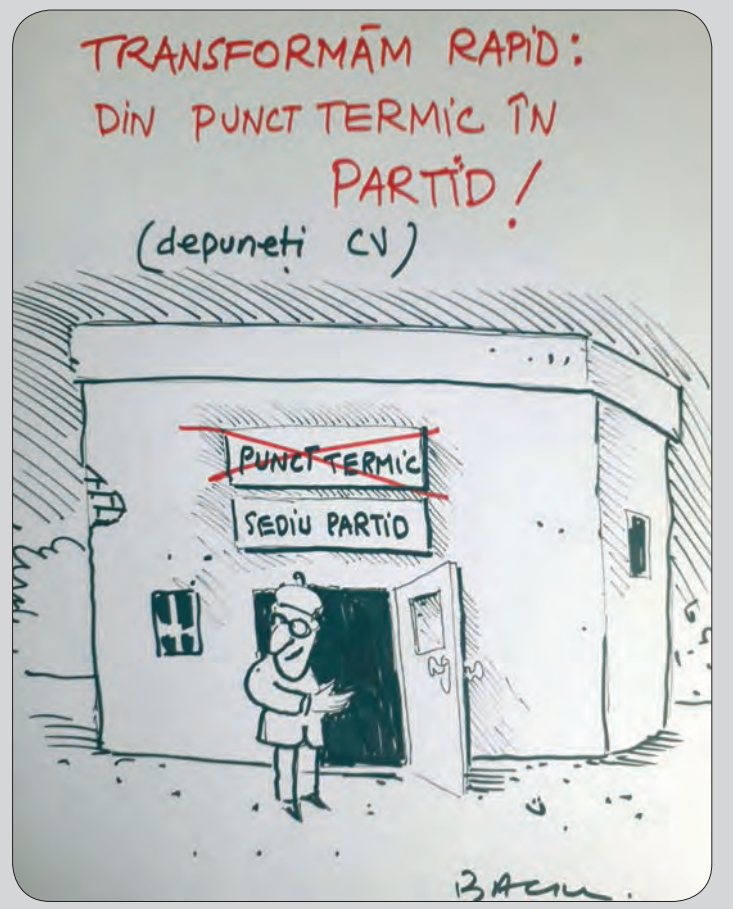 TRANSFORMĂM RAPiD:
DiN PUNCT TERMiC ÎN
PARTiD!
(depuneți CV)
PUNCT TERMiC
SEDiU PARTiD
BACIU